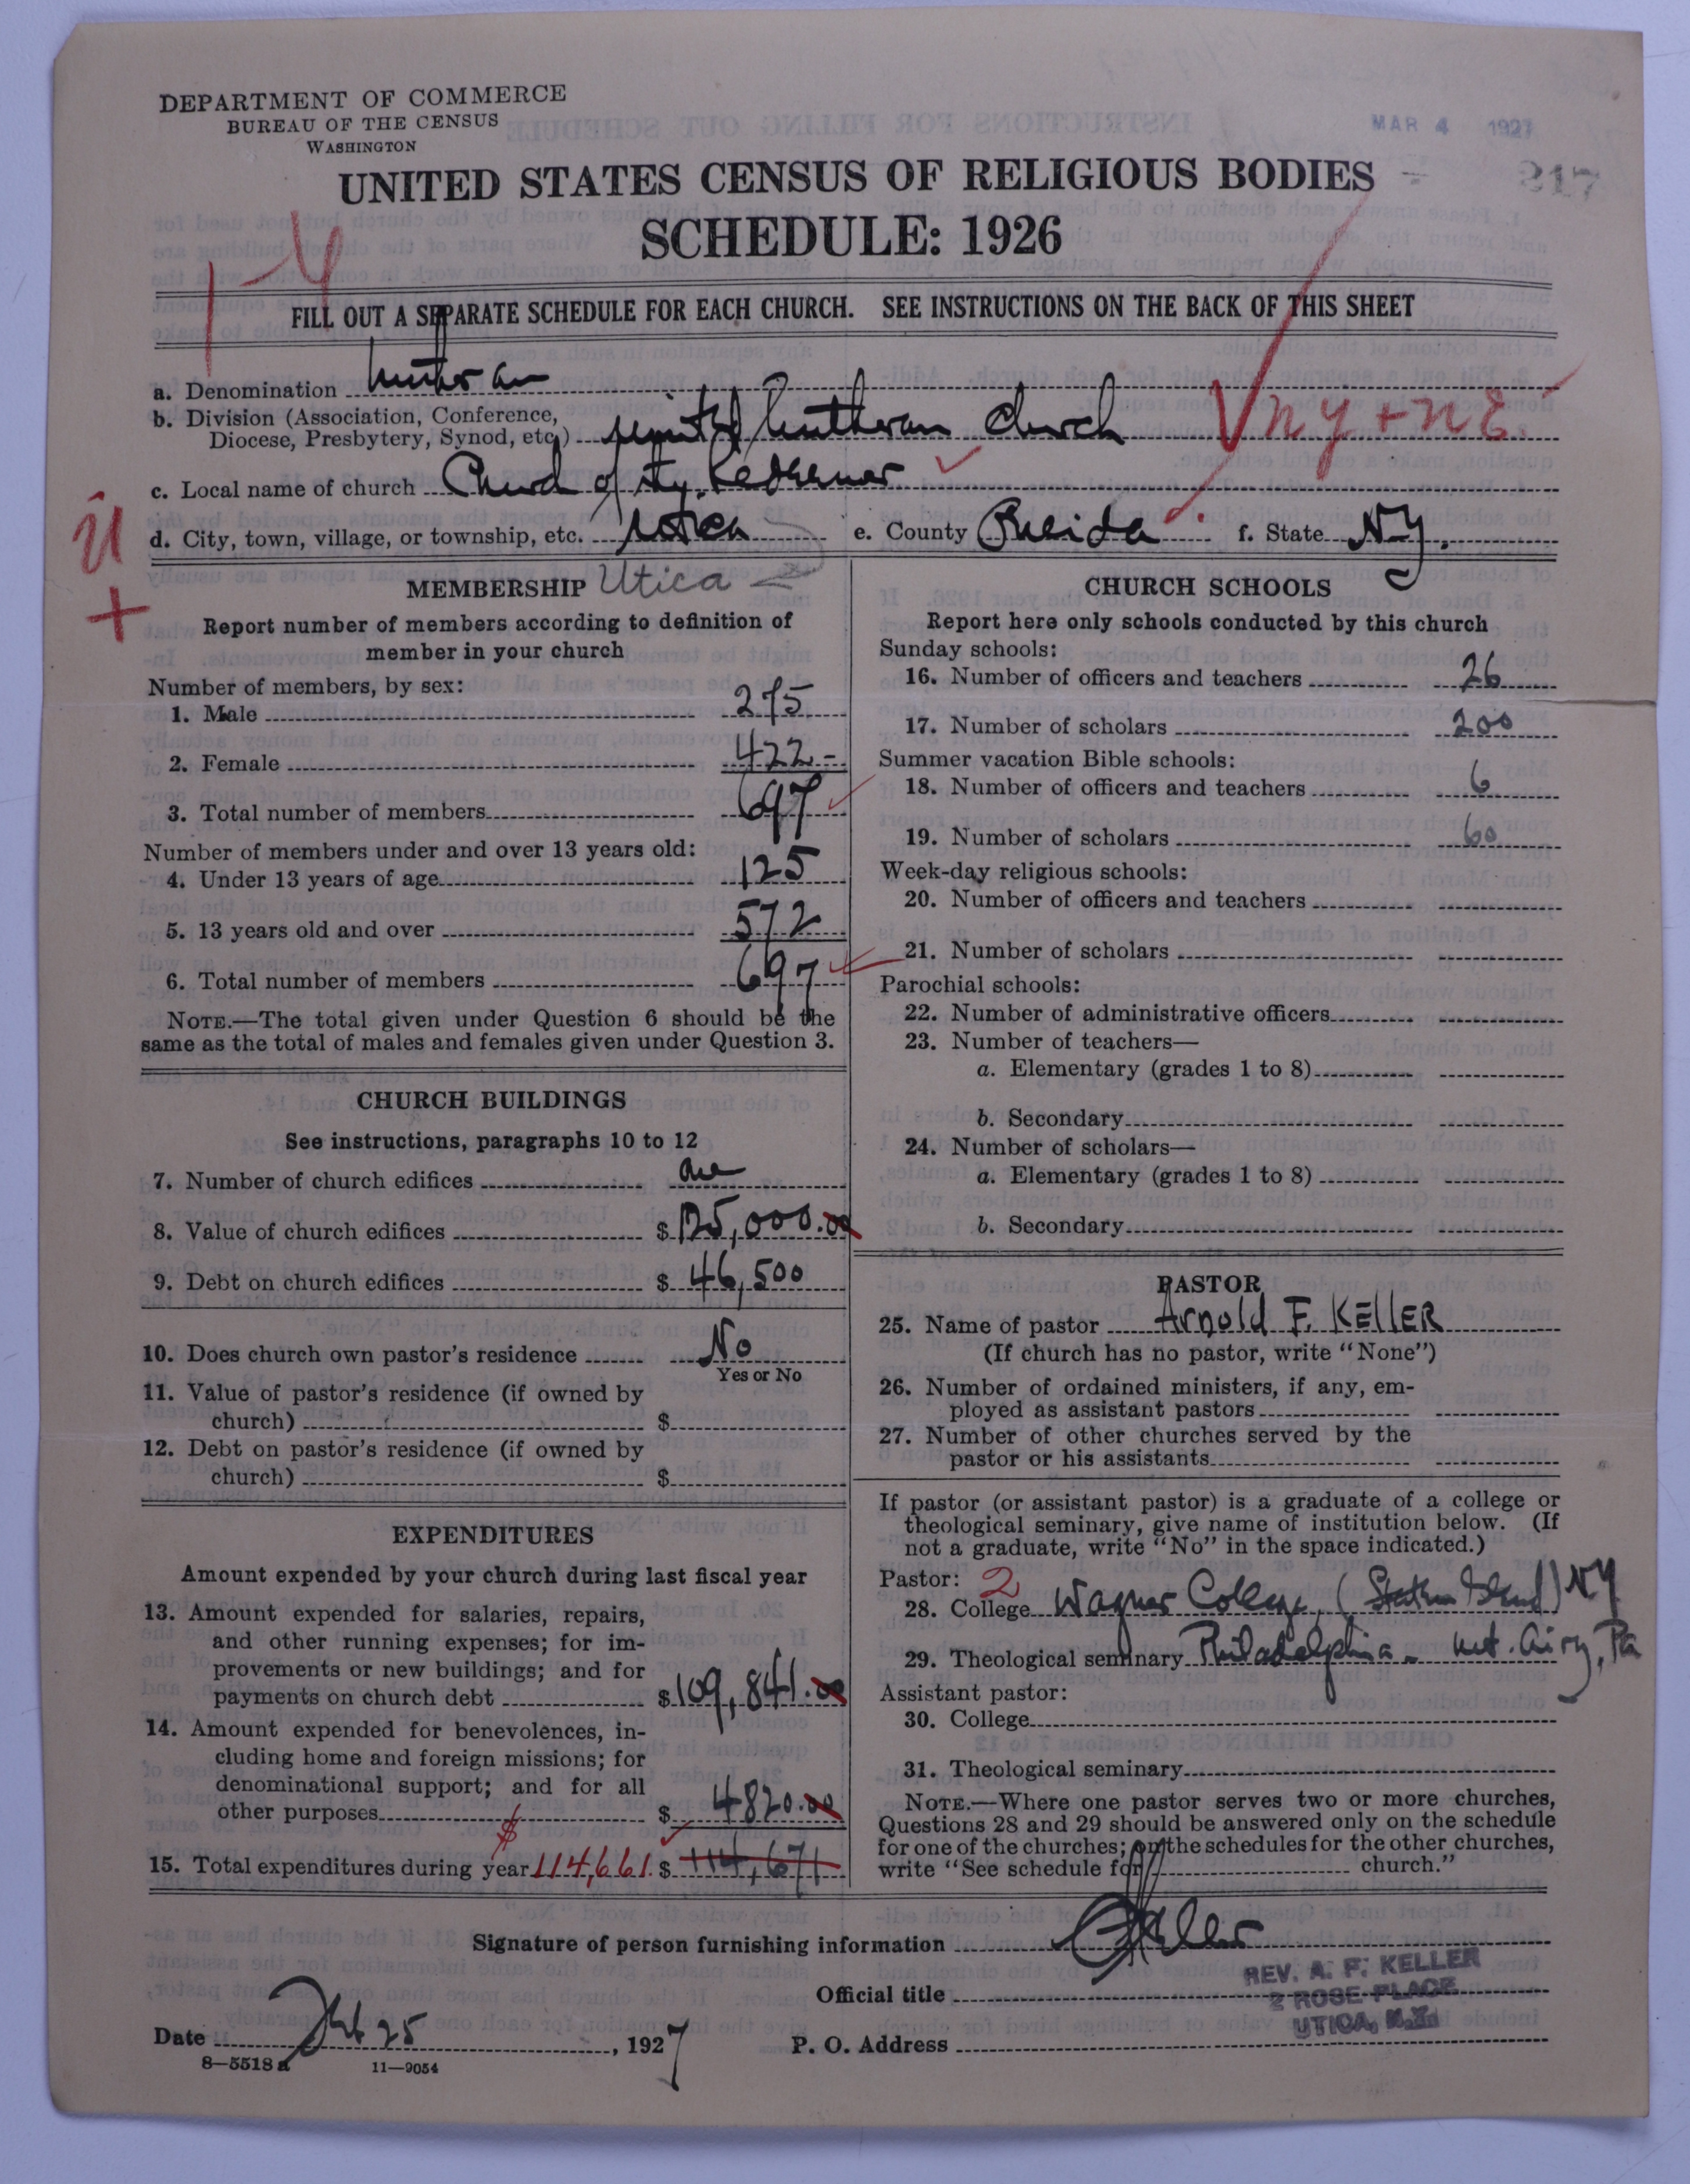 DEPARTMENT OF COMMERCE
BUREAU OF THE CENSUS
WASHINGTON
MAR 4 1927
317
UNITED STATES CENSUS OF RELIGIOUS BODIES
SCHEDULE: 1926
FILL OUT A SEPARATE SCHEDULE FOR EACH CHURCH. SEE INSTRUCTIONS ON THE BACK OF THIS SHEET
a. Denomination Lutheran
b. Division (Association, Conference,
Diocese, Presbytery, Synod, etc.) United Lutheran Church NY + NE
c. Local name of church Church of the Redeemer
d. City, town, village, or township, etc. Utica e. County Oneida f. State N.Y.
MEMBERSHIP Utica
Report number of members according to definition of
member in your church
Number of members, by sex:
1. Male 275
2. Female 422-
3. Total number of members 697
Number of members under and over 13 years old:
4. Under 13 years of age 125
5. 13 years old and over 572
6. Total number of members 697
NOTE.—The total given under Question 6 should be the
same as the total of males and females given under Question 3.
CHURCH BUILDINGS
See instructions, paragraphs 10 to 12
7. Number of church edifices one
8. Value of church edifices $ 125,000.00
9. Debt on church edifices $ 46,500
10. Does church own pastor's residence No
Yes or No
11. Value of pastor's residence (if owned by
church) $
12. Debt on pastor's residence (if owned by
church) $
EXPENDITURES
Amount expended by your church during last fiscal year
13. Amount expended for salaries, repairs,
and other running expenses; for im-
provements or new buildings; and for
payments on church debt $ 109,841.00
14. Amount expended for benevolences, in-
cluding home and foreign missions; for
denominational support; and for all
other purposes $ 4820.00
15. Total expenditures during year $114,661. $ 114,671
CHURCH SCHOOLS
Report here only schools conducted by this church
Sunday schools:
16. Number of officers and teachers 26
17. Number of scholars 200
Summer vacation Bible schools:
18. Number of officers and teachers 6
19. Number of scholars 60
Week-day religious schools:
20. Number of officers and teachers
21. Number of scholars
Parochial schools:
22. Number of administrative officers
23. Number of teachers—
a. Elementary (grades 1 to 8)
b. Secondary
24. Number of scholars—
a. Elementary (grades 1 to 8)
b. Secondary
PASTOR
25. Name of pastor Arnold F. KELLER
(If church has no pastor, write "None")
26. Number of ordained ministers, if any, em-
ployed as assistant pastors
27. Number of other churches served by the
pastor or his assistants
If pastor (or assistant pastor) is a graduate of a college or
theological seminary, give name of institution below. (If
not a graduate, write "No" in the space indicated.)
Pastor: 2
28. College Wagner College, (Staten Island) NY
29. Theological seminary Philadelphia - Mt. Airy, Pa
Assistant pastor:
30. College
31. Theological seminary
NOTE.—Where one pastor serves two or more churches,
Questions 28 and 29 should be answered only on the schedule
for one of the churches; on the schedules for the other churches,
write "See schedule for church."
Signature of person furnishing information AFKeller
Official title
REV. A. F. KELLER
2 ROSE PLACE
UTICA, N.Y.
Date Feb 25, 1927 P. O. Address
8—5518a 11—9054